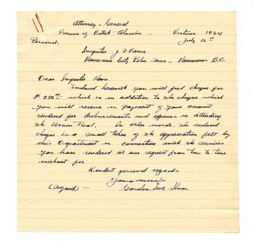 Attorney-General
Province of British Columbia Victoria 1924
Personal. July 12th
Inspector
Vancouver City Police Vancouver B.C.
Dear Inspector
Enclosed herewith you will find cheque for
which is in addition to the cheque which
you will receive in payment of your account
rendered for disbursements and expenses in attending
the Vernon Trial. In other words, the enclosed
cheque is a small token of the appreciation felt by
this Department in connection with the services
you have rendered at our request from time to time
Kindest personal regards.
Yours
(Signed) Gordon Sloan